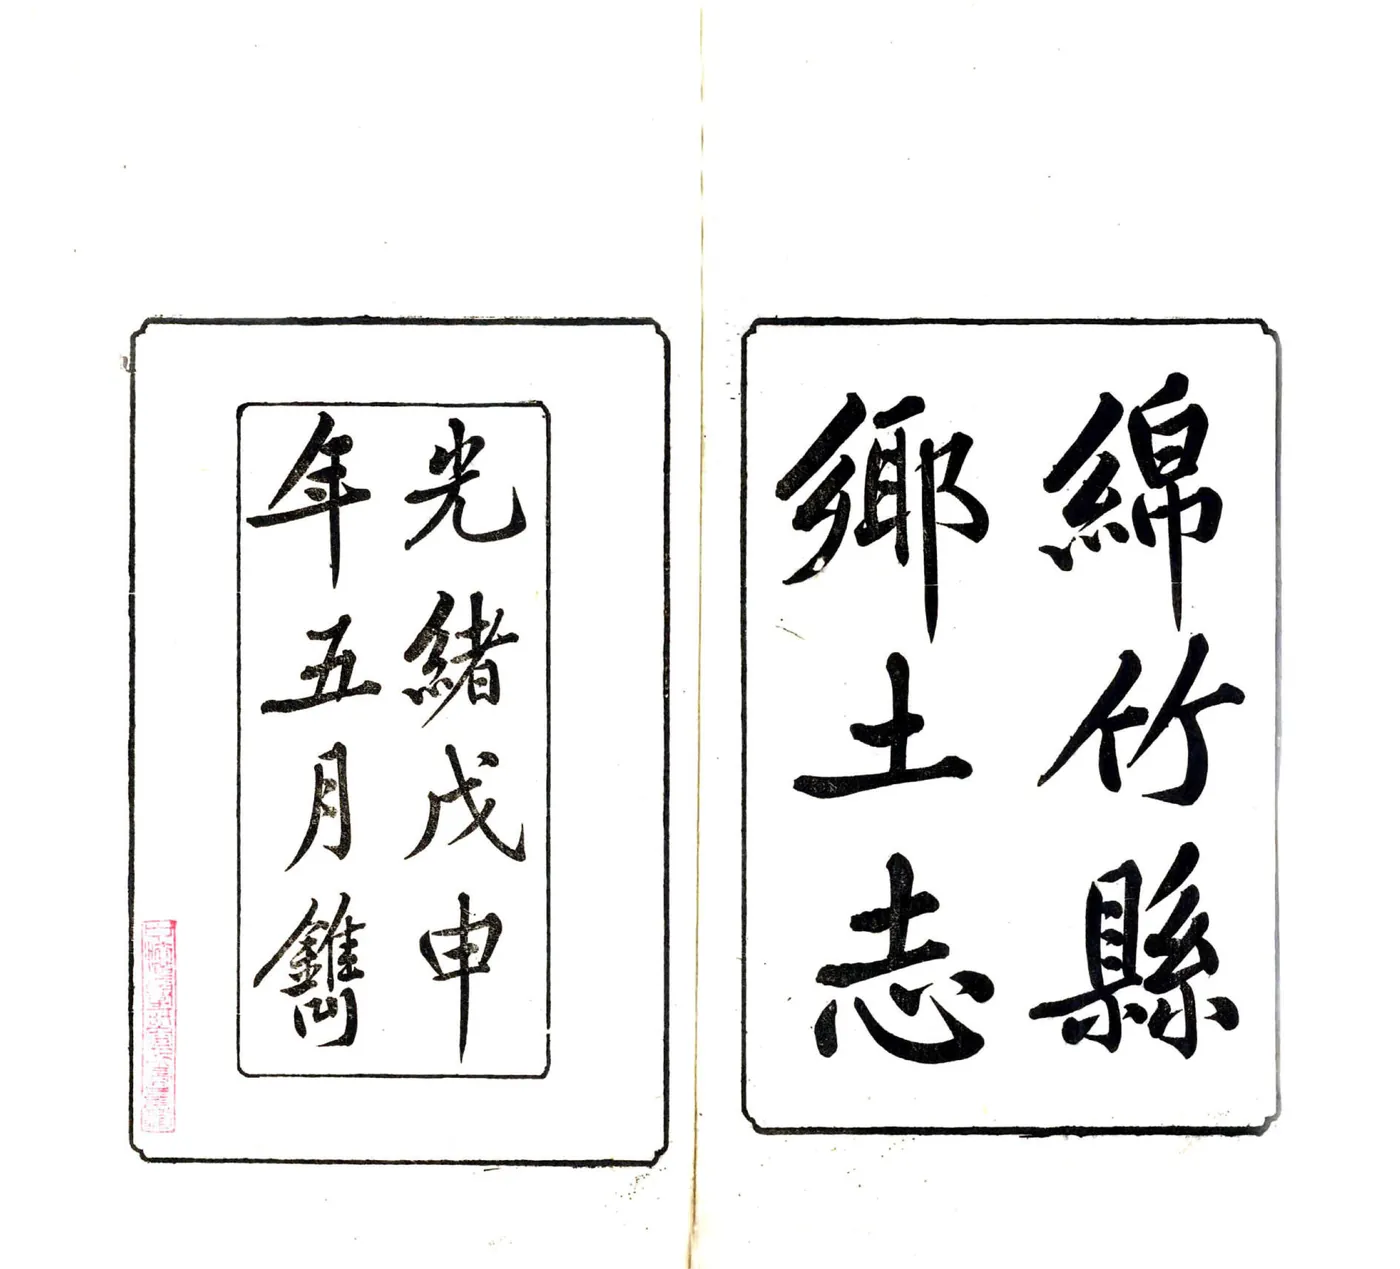 綿竹縣
鄉土志
光緒戊申
年五月鐫